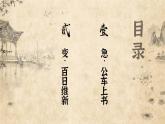 目录
壹
急·公车上书
贰
变·百日维新